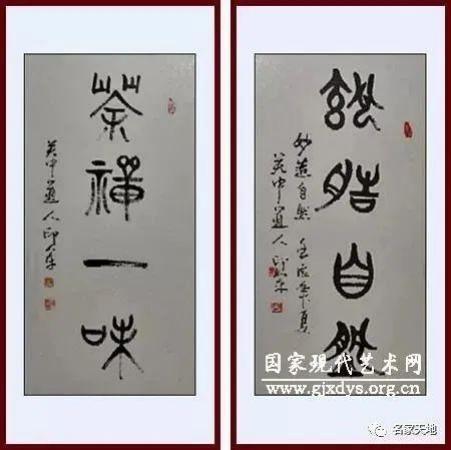 茶禪一味
中道人印
妙造自然
妙造自然
中道人印
国家现代艺术网
www.gjxdys.org.cn
名家天地